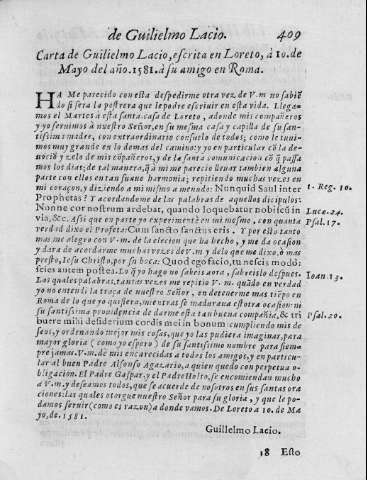 de Guilielmo Lacio. 409
Carta de Guilielmo Lacio, escrita en Loreto, à 10. de
Mayo del año. 1581. à su amigo en Roma.
HA Me parecido con esta despedirme otra vez de V.m no sabiẽ
do si sera la postrera que le podre escriuir en esta vida. Llega-
mos el Martes à esta santa casa de Loreto, adonde mis compañeros
y yo seruimos à nuestro Señor, en su mesma casa y capilla de su san-
tissima madre, con extraordinario consuelo de todos; como le tuui-
mos muy grande en lo demas del camino: y yo en particular cõ la de-
uociõ y zelo de mis cõpañeros, y de la santa comunicacion cõ q̃ passa
mos los dias; de tal manera, q̃ à mi me parecio lleuar tambien alguna
parte con ellos en tan suaue harmonia; repitiendo muchas vezes en
mi coraçon, y diziendo à mi mismo à menudo: Nunquid Saul inter
Prophetas? Y acordandome de las palabras de aquellos dicipulos:
Nonne cor nostrum ardebat, quando loquebatur nobiscũ in
via, &c. Assi que en parte yo experimentè en mi mesmo, con quanta
verdad dixo el Profeta: Cum sancto sanctus eris. Y por esto tanto
mas me alegro con V.m. de la elecion que ha hecho, y me da ocasion
y dara de acordarme muchas vezes de V.m y dela que me dixo, ò mas
presto, Iesu Christo, por su boca: Quod ego facio, tu nescis modò,
scies autem postea. Lo q̃ yo hago no sabeis aora, sabreislo despues.
Las quales palabras, tantas vezes me repitio V.m. quãdo en verdad
yo no entendi la traça de nuestro Señor, en detenerme mas tiẽpo en
Roma de lo que yo quisiera, mientras se maduraua esta ocasion
su santissima prouidencia de darme esta tan buena compañia, & tri
buere mihi desiderium cordis mei in bonum cumpliendo mis de-
seos, y ordenando mejor mis cosas, que yo las pudiera imaginar, para
mayor gloria (como yo espero) de su santissimo nombre para siem-
pre jamas. V.m. dè mis encarecidas à todos los amigos, y en particu-
lar al buen Padre Alfonso Agazario, a quien quedo con perpetua o-
bligacion. El Padre Gaspar, y el Padre se encomiendan mucho
à V.m. y deseamos todos, que se acuerde de nosotros en sus santas ora
ciones: las quales otorgue nuestro Señor para su gloria, y que le po-
damos seruir (como es razon) a donde vamos. De Loreto à 10. de Ma
yo, de. 1581.
Guillelmo Lacio.
18 Esto
1. Reg. 10.
Luce. 24.
Psal. 17.
Ioan. 13.
Psal. 20.